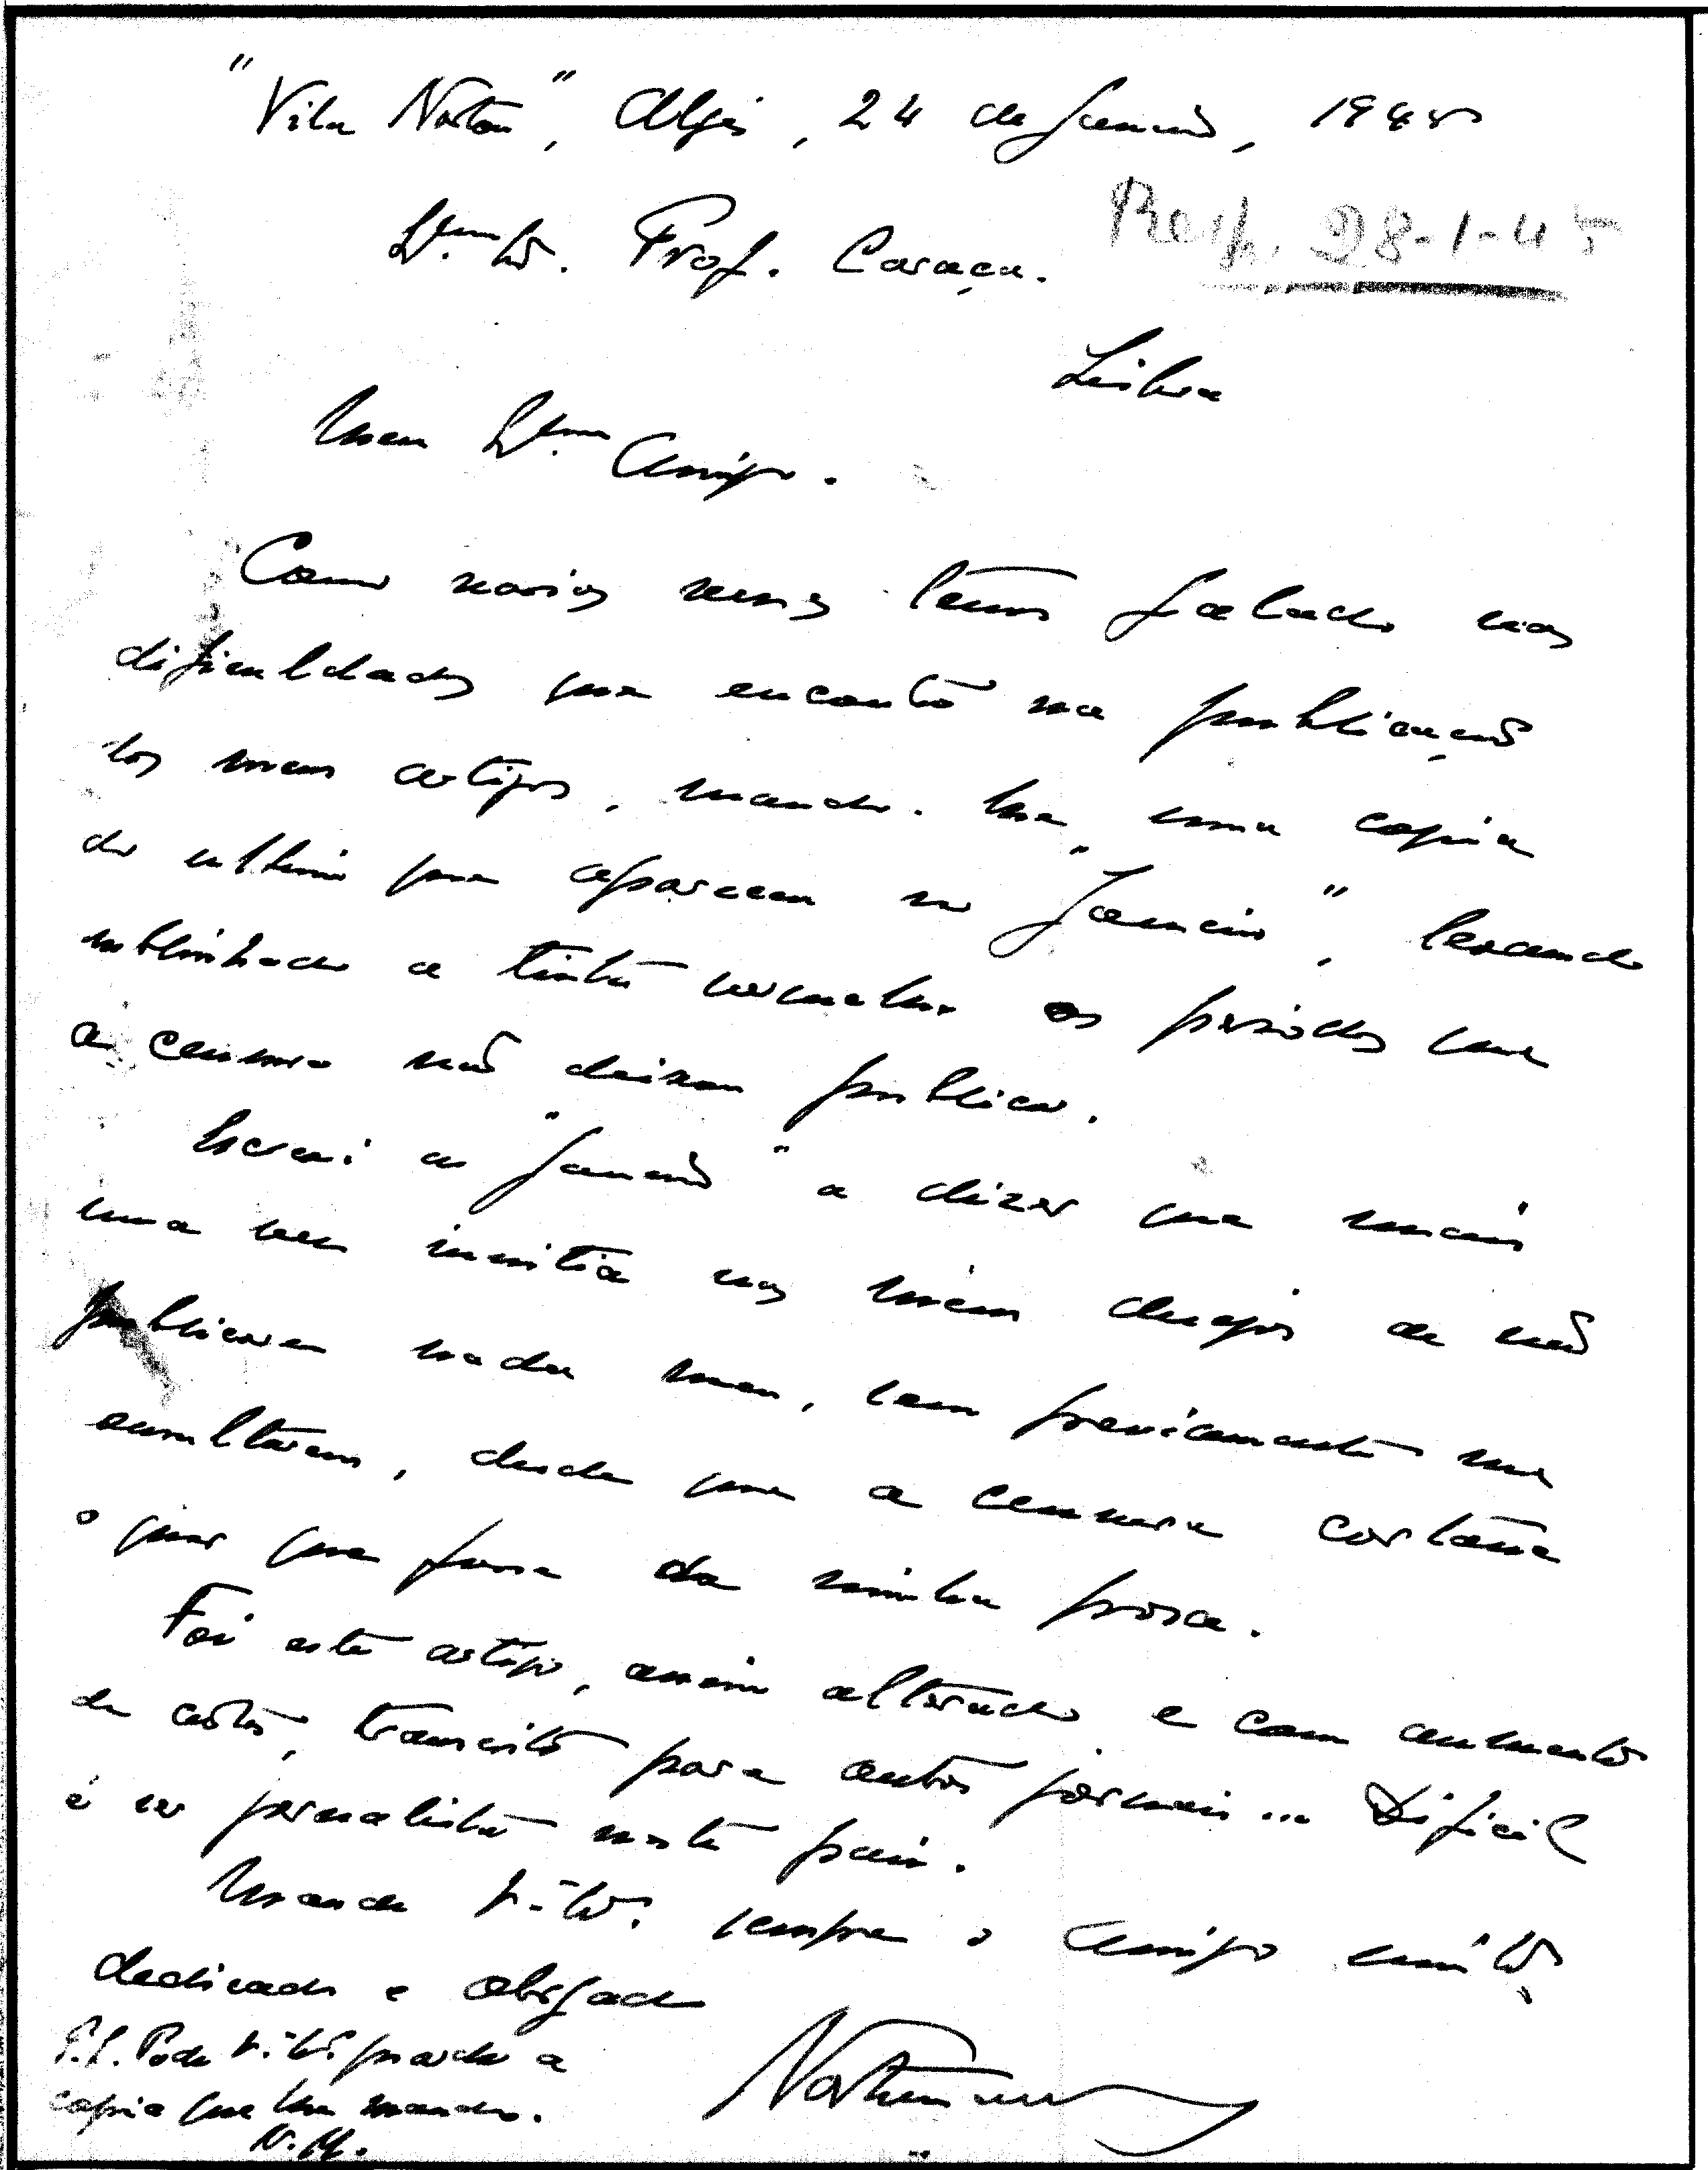 "Vila Norton", Algés, 24 de Janeiro, 1945
Ex.mo Sr. Prof. Caraça.
Resp. 28-1-45
Lisboa
Meu Ex.mo Amigo.
Como varias vezes temos falado nas
dificuldades que encontro na publicação
dos meus artigos, mando-lhe uma copia
do ultimo que apareceu no "Janeiro", levando
sublinhado a tinta vermelha os periodos que
a censura não deixou publicar.
Escrevi ao "Janeiro" a dizer que mais
uma vez insistia nos meus desejos de não
publicarem nada meu, sem previamente me
consultarem, desde que a censura cortasse
o quer que fosse da minha prosa.
Foi este artigo, assim alterado e com aumento
de cortes, transcrito para outros jornais... Dificil
é ser jornalista neste pais.
Mande V. Ex. sempre o amigo muito
dedicado e obrigado
Norton
P.S. Pode V. Ex. guardar a
copia que lhe mando.
N. M.